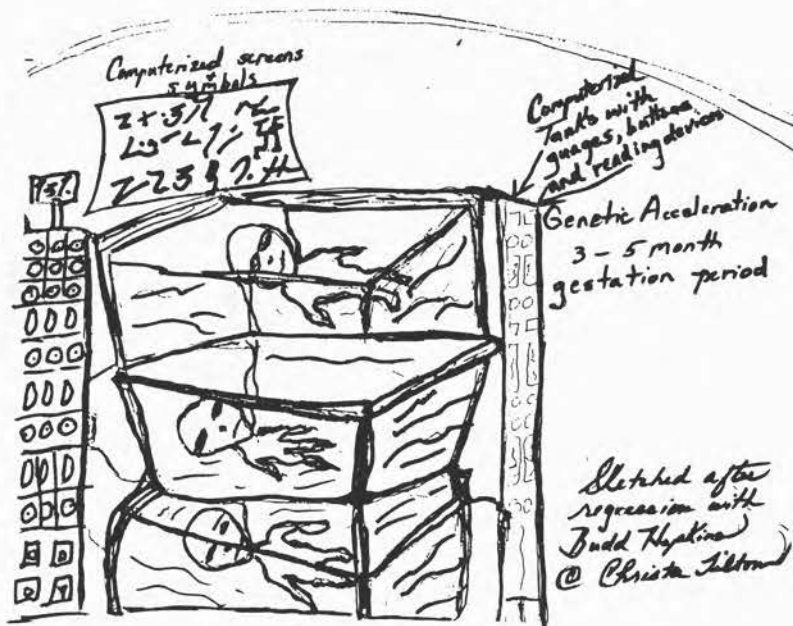 Computerized screens
symbols
Computerized
Tanks with
guages, buttons
and reading devices
Genetic Acceleration
3 - 5 month
gestation period
Sketched after
regression with
Budd Hopkins
@ Christa Tilton